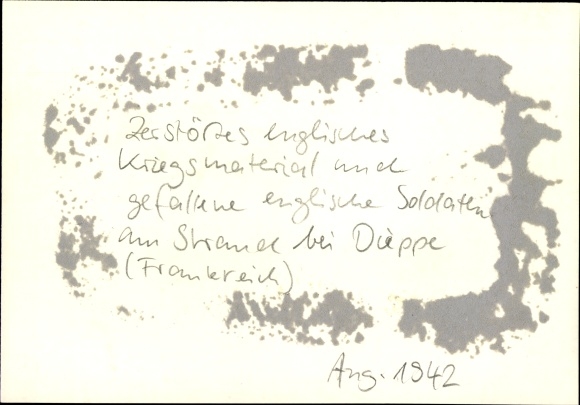 Zerstörtes englisches
Kriegsmaterial und
gefallene englische Soldaten
am Strand bei Dieppe
(Frankreich)
Aug. 1942